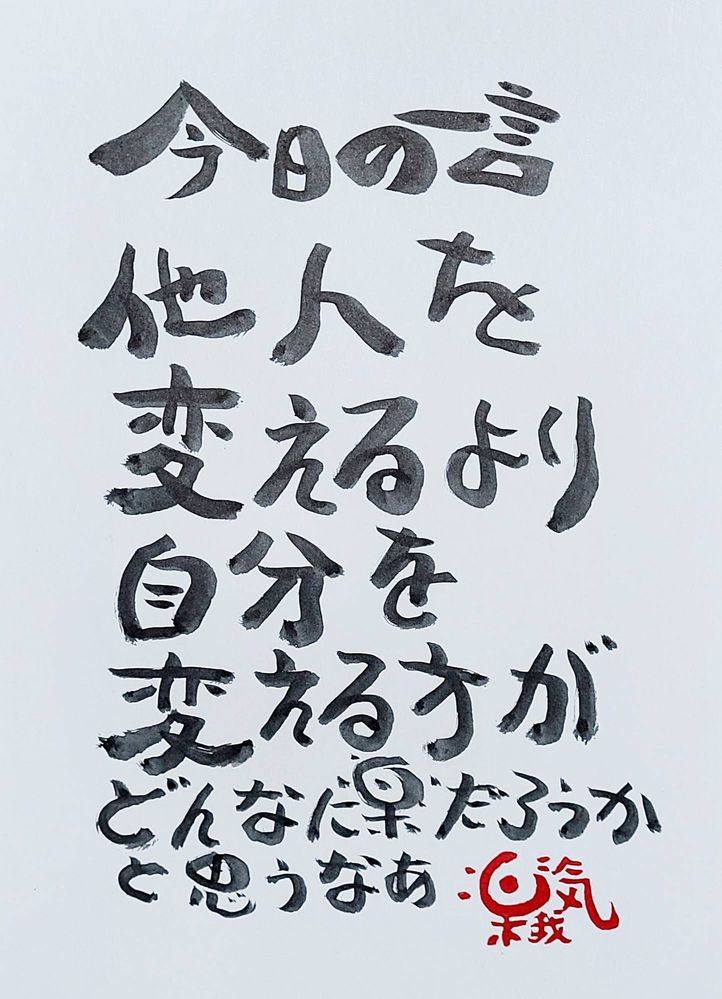 今日の一言
他人を
変えるより
自分を
変える方が
どんなに楽だろうか
と思うなあ
楽気